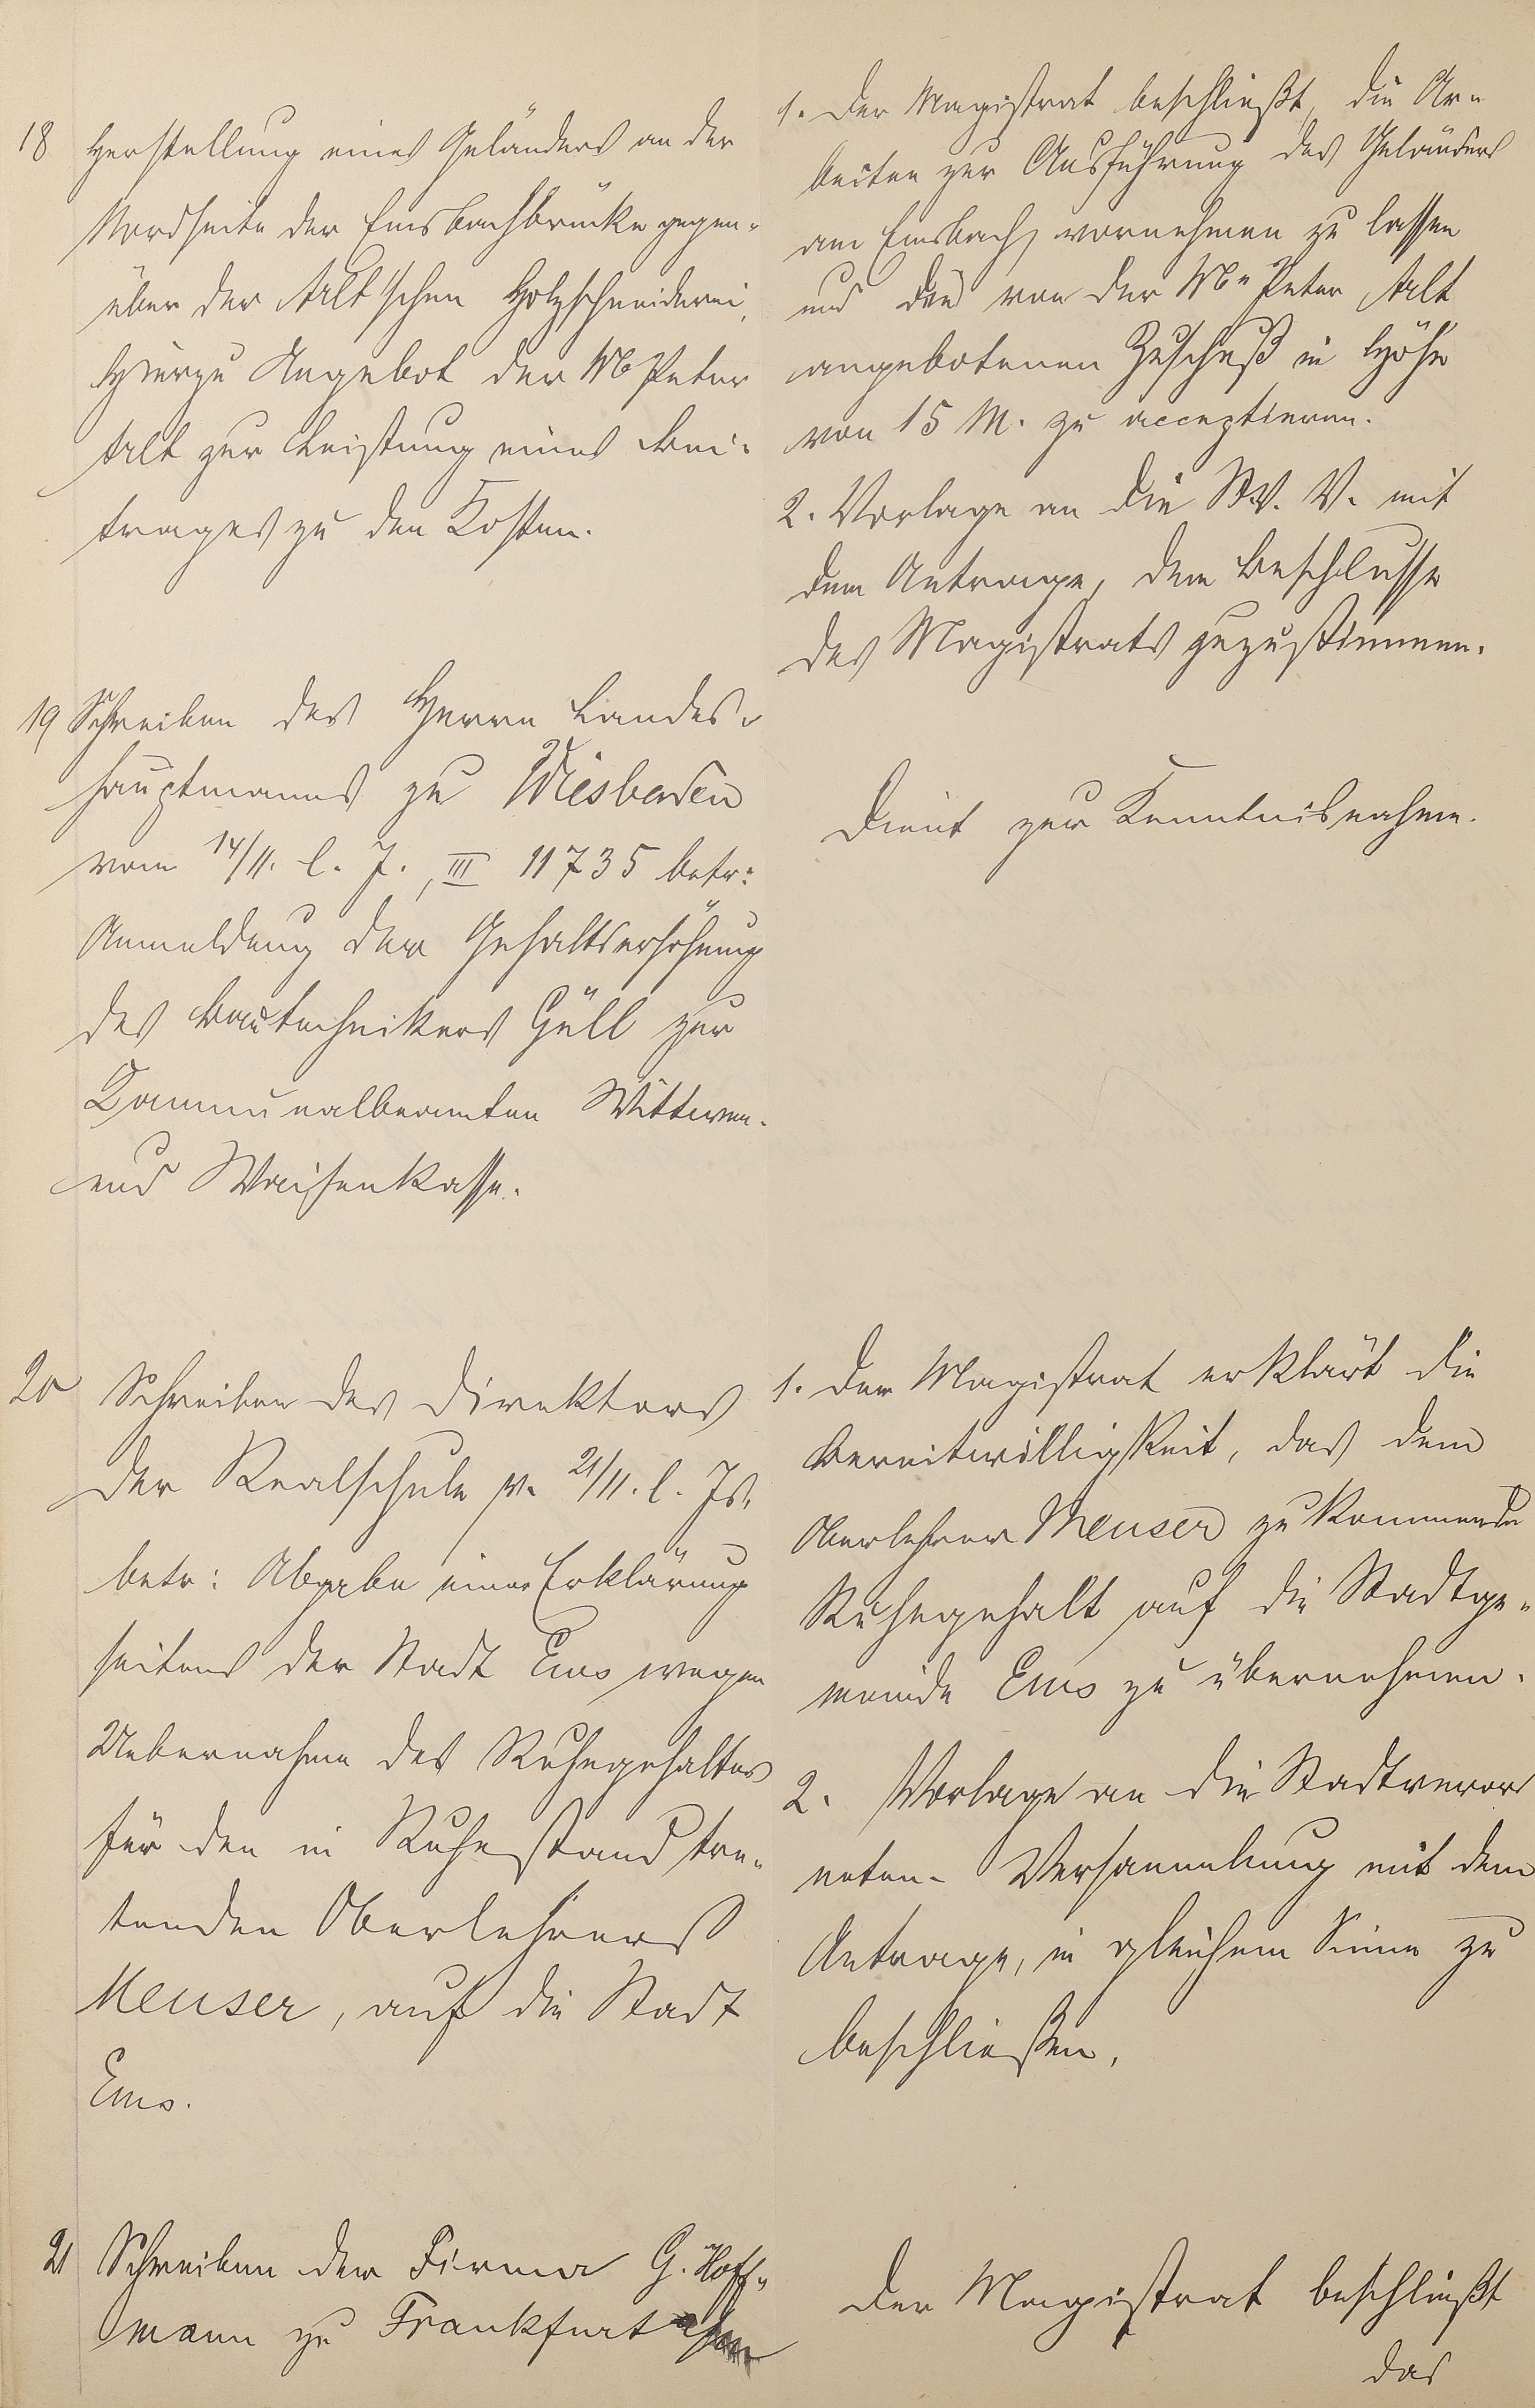 18 Herstellung eines Geländers an der
Nordseite der Emsbachbrücke gegen-
über der Alt'schen Holzschneiderei,
Hierzu Angebot der W Peter
Alt zur Leistung eines Bei-
trages zu den Kosten.
1. Der Magistrat beschließt, die Ar-
beiten zur Ausführung des Geländers
am Emsbach vornehmen zu lassen
und den von der Peter Alt
angebotenen Zuschuß in Höhe
von 15 M. zu acceptieren.
2. Vorlage an die St. V. V. mit
dem Antrage, dem Beschlusse
des Magistrats zuzustimmen.
19 Schreiben des Herrn Landes-
hauptmanns zu Wiesbaden
vom 14/11. l. J., III 11735 betr:
Anmeldung der Gehaltserhöhung
des Bautechnikers Güll zur
Kommunalbeamten Wittwen-
und Waisenkasse.
Dient zur Kenntnisnahme.
20 Schreiben des Direktors
der Realschule v. 21/11. l. Js.
betr: Abgabe einer Erklärung
seitens der Stadt Ems wegen
Uebernahme des Ruhegehaltes
für den in Ruhestand tre-
tenden Oberlehrers
Meuser, auf die Stadt
Ems.
1. Der Magistrat erklärt die
Bereitwilligkeit, das dem
Oberlehrer Meuser zukommende
Ruhegehalt auf die Stadtge-
meinde Ems zu übernehmen.
2. Vorlage an die Stadtveror
neten- Versammlung mit dem
Antrage, in gleichem Sinne zu
beschließen.
21 Schreiben der Firma G. Hoff-
mann zu Frankfurt
Der Magistrat beschließt
das